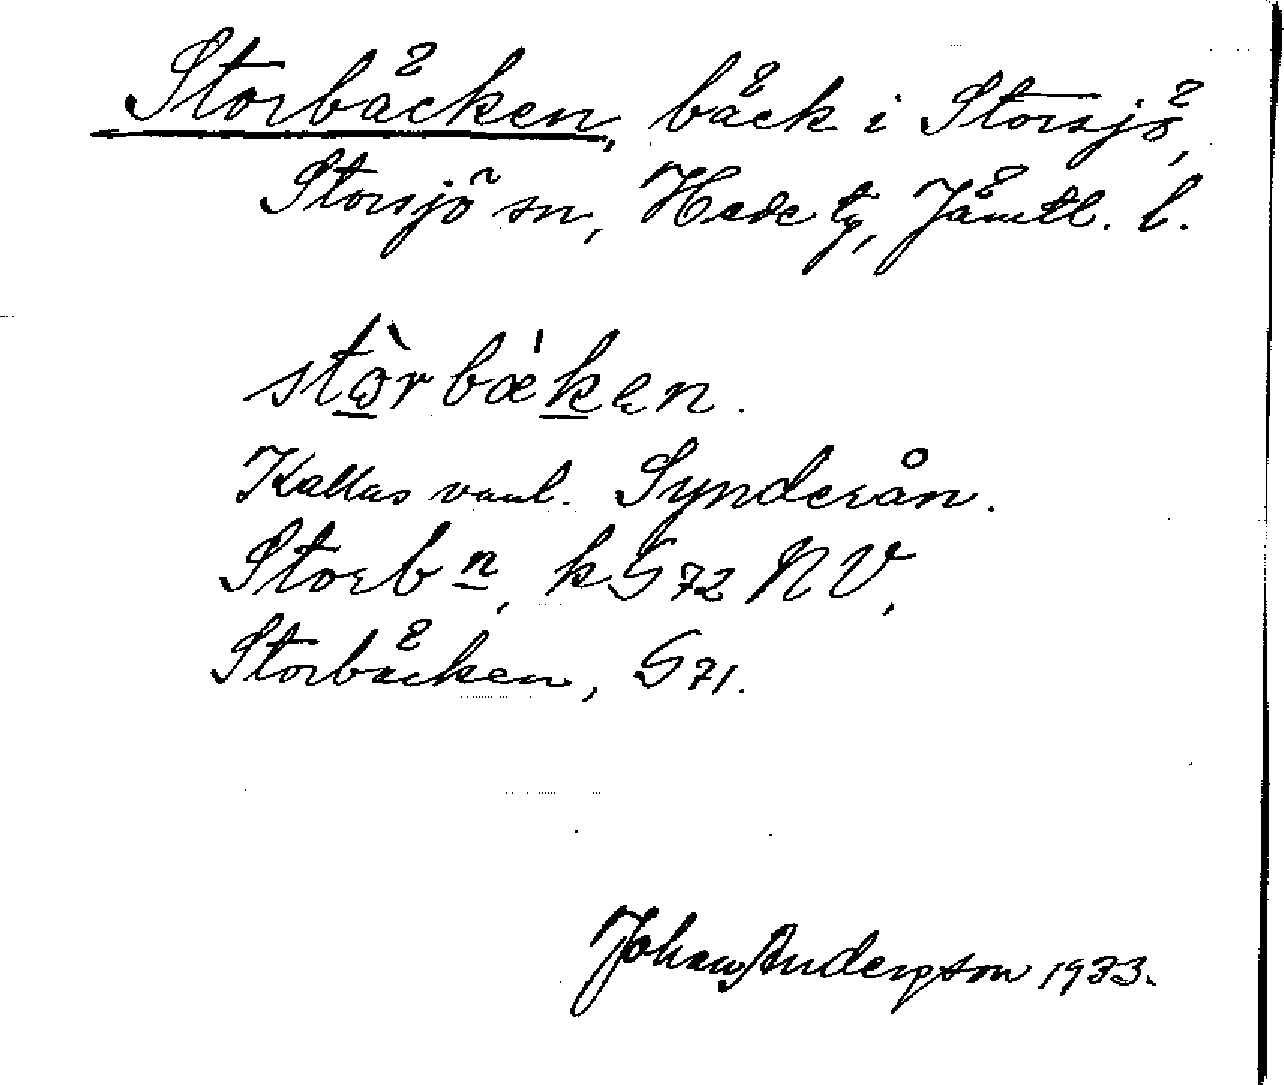 Storbäcken, bäck i Storsjö,
Storsjö sn, Hede tg, Jämtl. l.
stòrbæken.
Kallas vanl. Synderån.
Storbn, kG72 NV,
Storbäcken, G71.
Johan Anderson 1933.